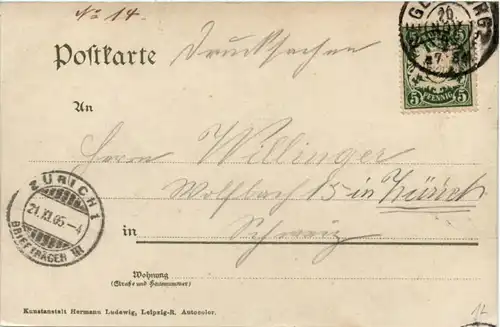 No 14.
Postkarte
Drucksachen
5 PFENNIG 5
An
Herrn Willinger
Wolfbach 15 in Zürich
in Schweiz
ZÜRICH 1
21.XI.05.-4
BRIEFTRÄGER
Wohnung
(Straße und Hausnummer)
Kunstanstalt Hermann Ludewig, Leipzig-R. Autocolor.